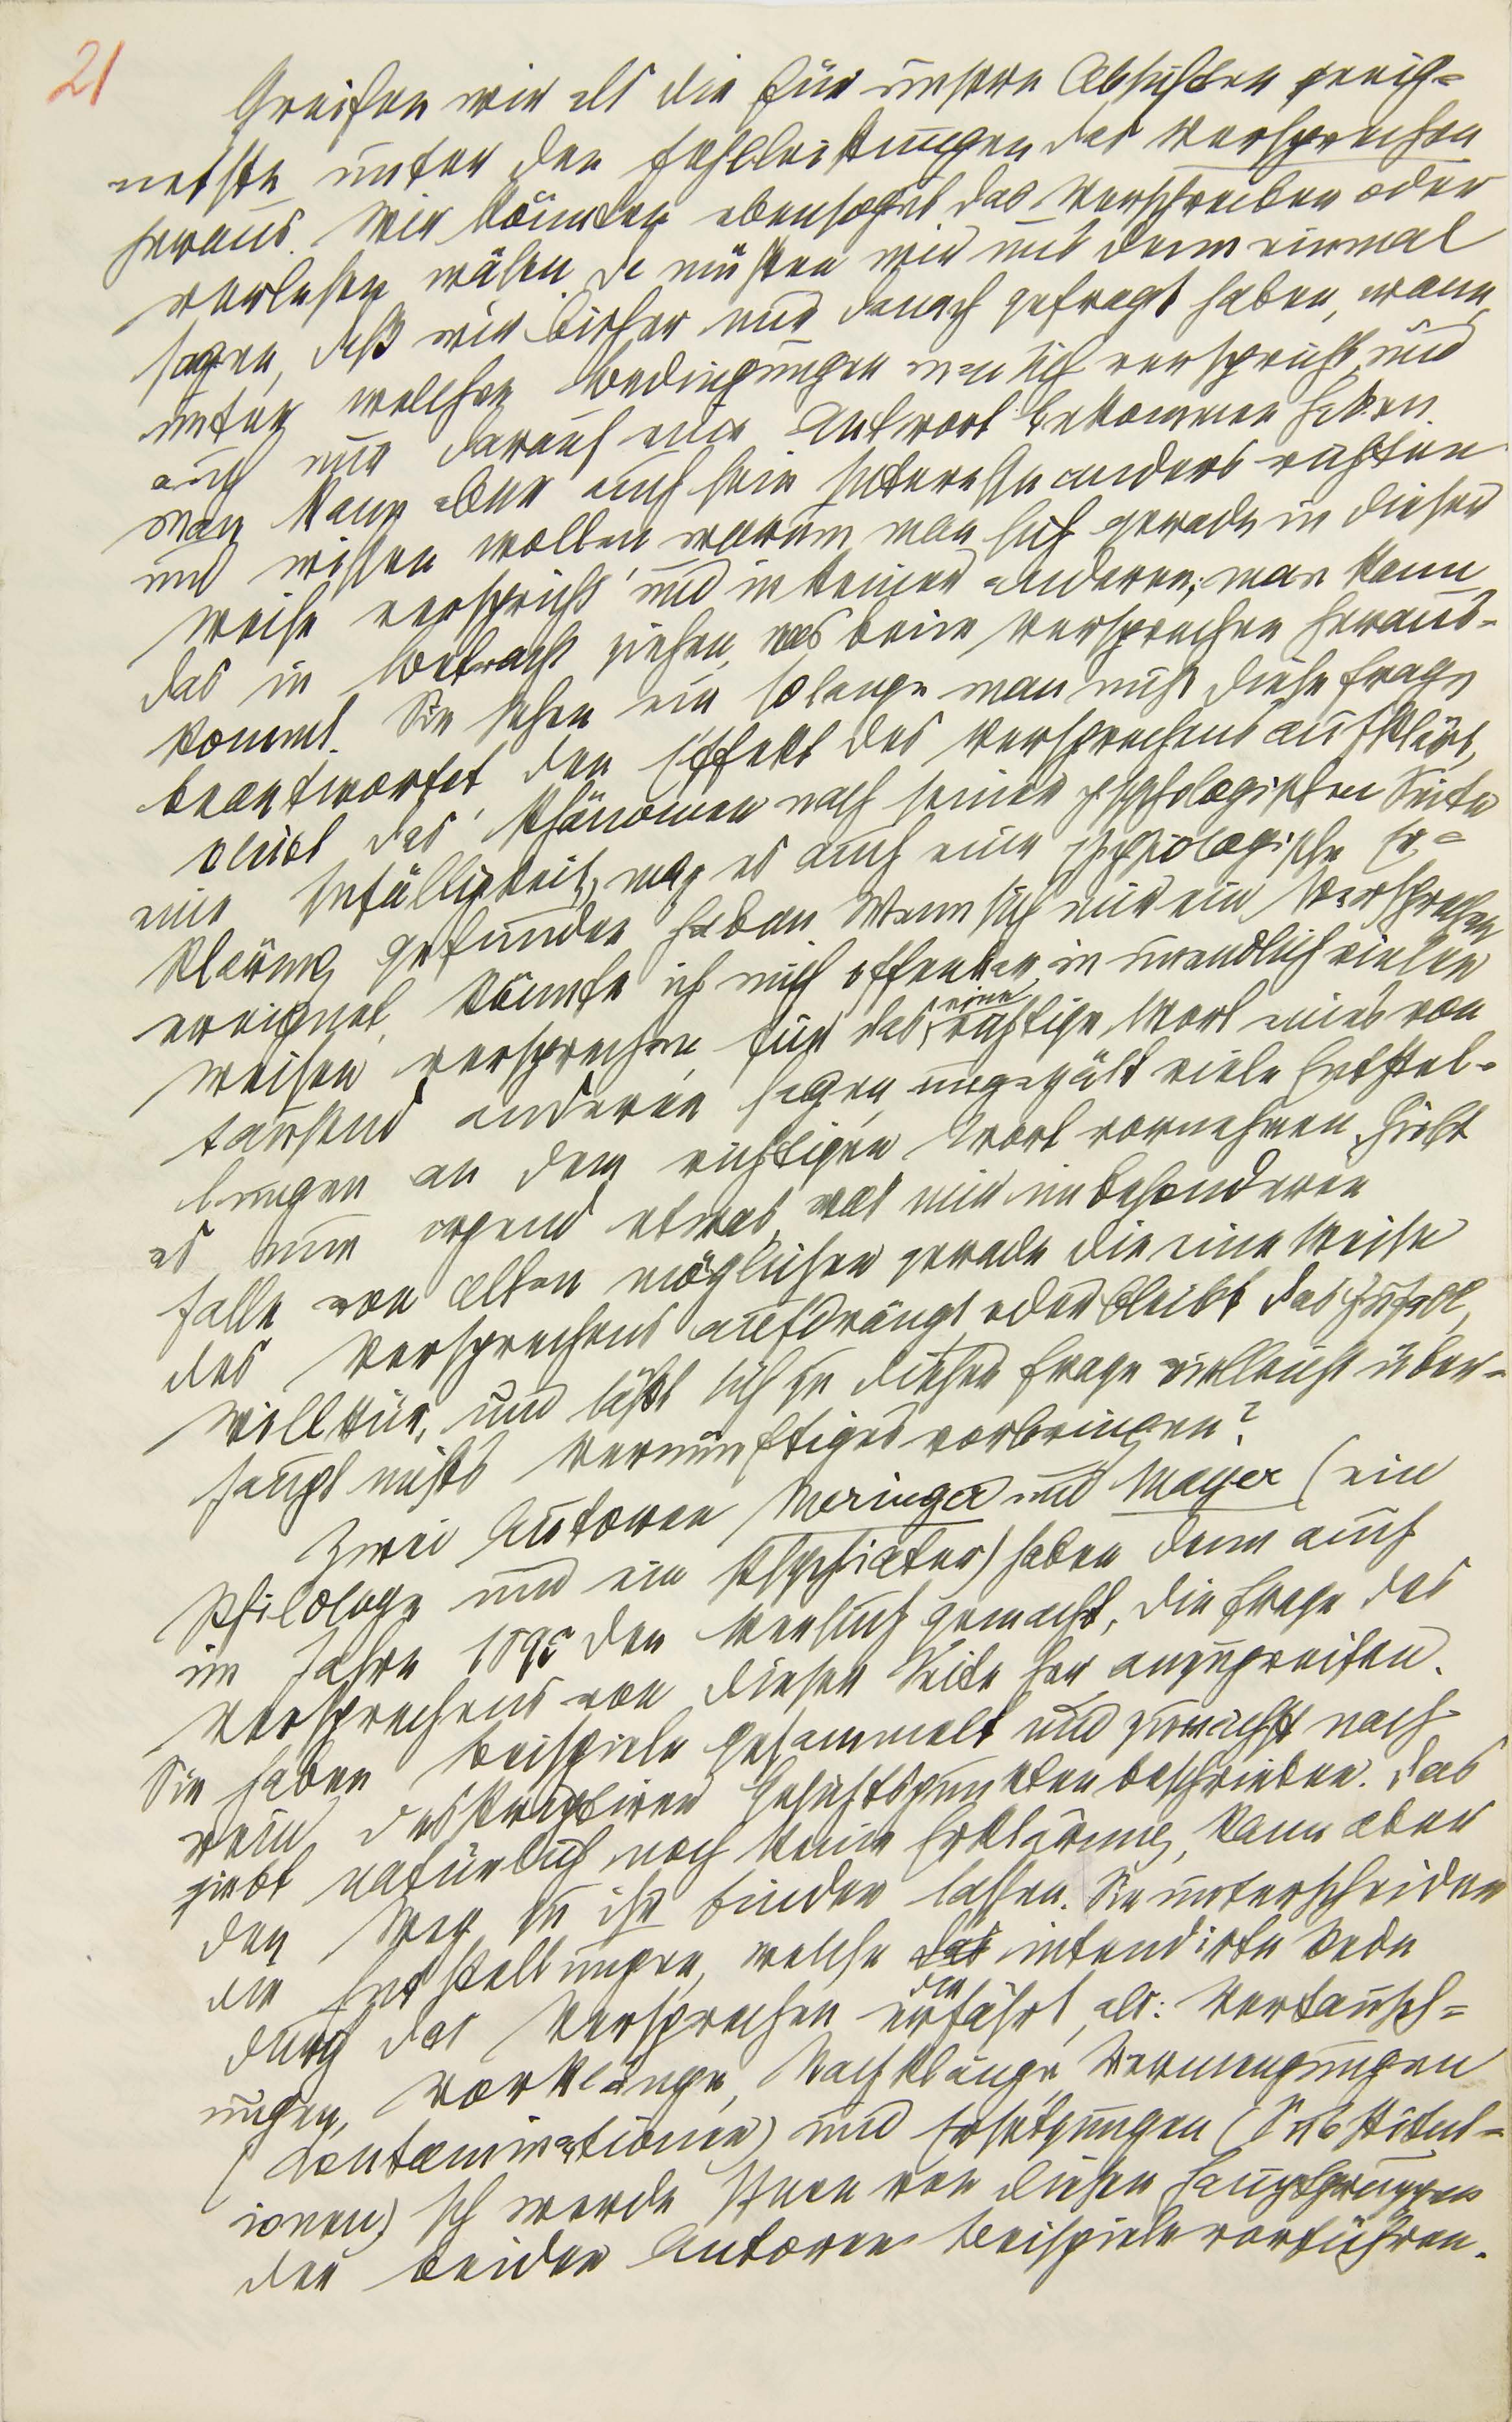 21
Greifen wir als die für unsere Absichten geeig-
netste unter den Fehlleistungen das Versprechen
heraus. Wir könnten ebensogut das Verschreiben oder
Verlesen wälen. Da müssen wir uns denn einmal
sagen, daß wir bisher nur danach gefragt haben, wann,
unter welchen Bedingungen man sich verspricht, und
auch nur darauf eine Antwort bekommen haben.
Man kann aber auch sein Interesse anders richten
und wissen wollen, warum man sich gerade in dieser
Weise verspricht und in keiner anderen; man kann
das in Betracht ziehen, was beim Versprechen heraus-
kommt. Sie sehen ein, solange man nicht diese Frage
beantwortet, den Effekt des Versprechens aufklärt,
bleibt das Phänomen nach seiner psychologischen Seite
eine Zufälligkeit, mag es auch eine physiologische Er-
klärung gefunden haben. Wenn sich mir ein Versprechen
ereignet, könnte ich mich offenbar in unendlich vielen
Weisen versprechen, für das eine richtige Wort eines von
tausend anderen sagen, ungezält viele Entstel-
lungen an dem richtigen Wort vornehmen. Giebt
es nun irgend etwas, was mir im besonderen
Falle von allen möglichen gerade die eine Weise
des Versprechens aufdrängt, oder bleibt das Zufall,
Willkür, und läßt sich zu dieser Frage vielleicht über-
haupt nichts Vernünftiges vorbringen?
Zwei Autoren, Meringer und Mayer (ein
Philologe und ein Psychiater) haben denn auch
im Jahre 1895 den Versuch gemacht, die Frage des
Versprechens von dieser Seite her anzugreifen.
Sie haben Beispiele gesammelt und zunächst nach
rein deskriptiven Gesichtspunkten beschrieben. Das
giebt natürlich noch keine Erklärung, kann aber
den Weg zu ihr finden lassen. Sie unterscheiden
die Entstellungen, welche die intendirte Rede
durch das Versprechen erfährt, als: Vertausch-
ungen, Vorklänge, Nachklänge, Vermengungen
(Contaminationen) und Ersetzungen (Substitut-
ionen). Ich werde Ihnen von diesen Hauptgruppen
der beiden Autoren Beispiele vorführen.